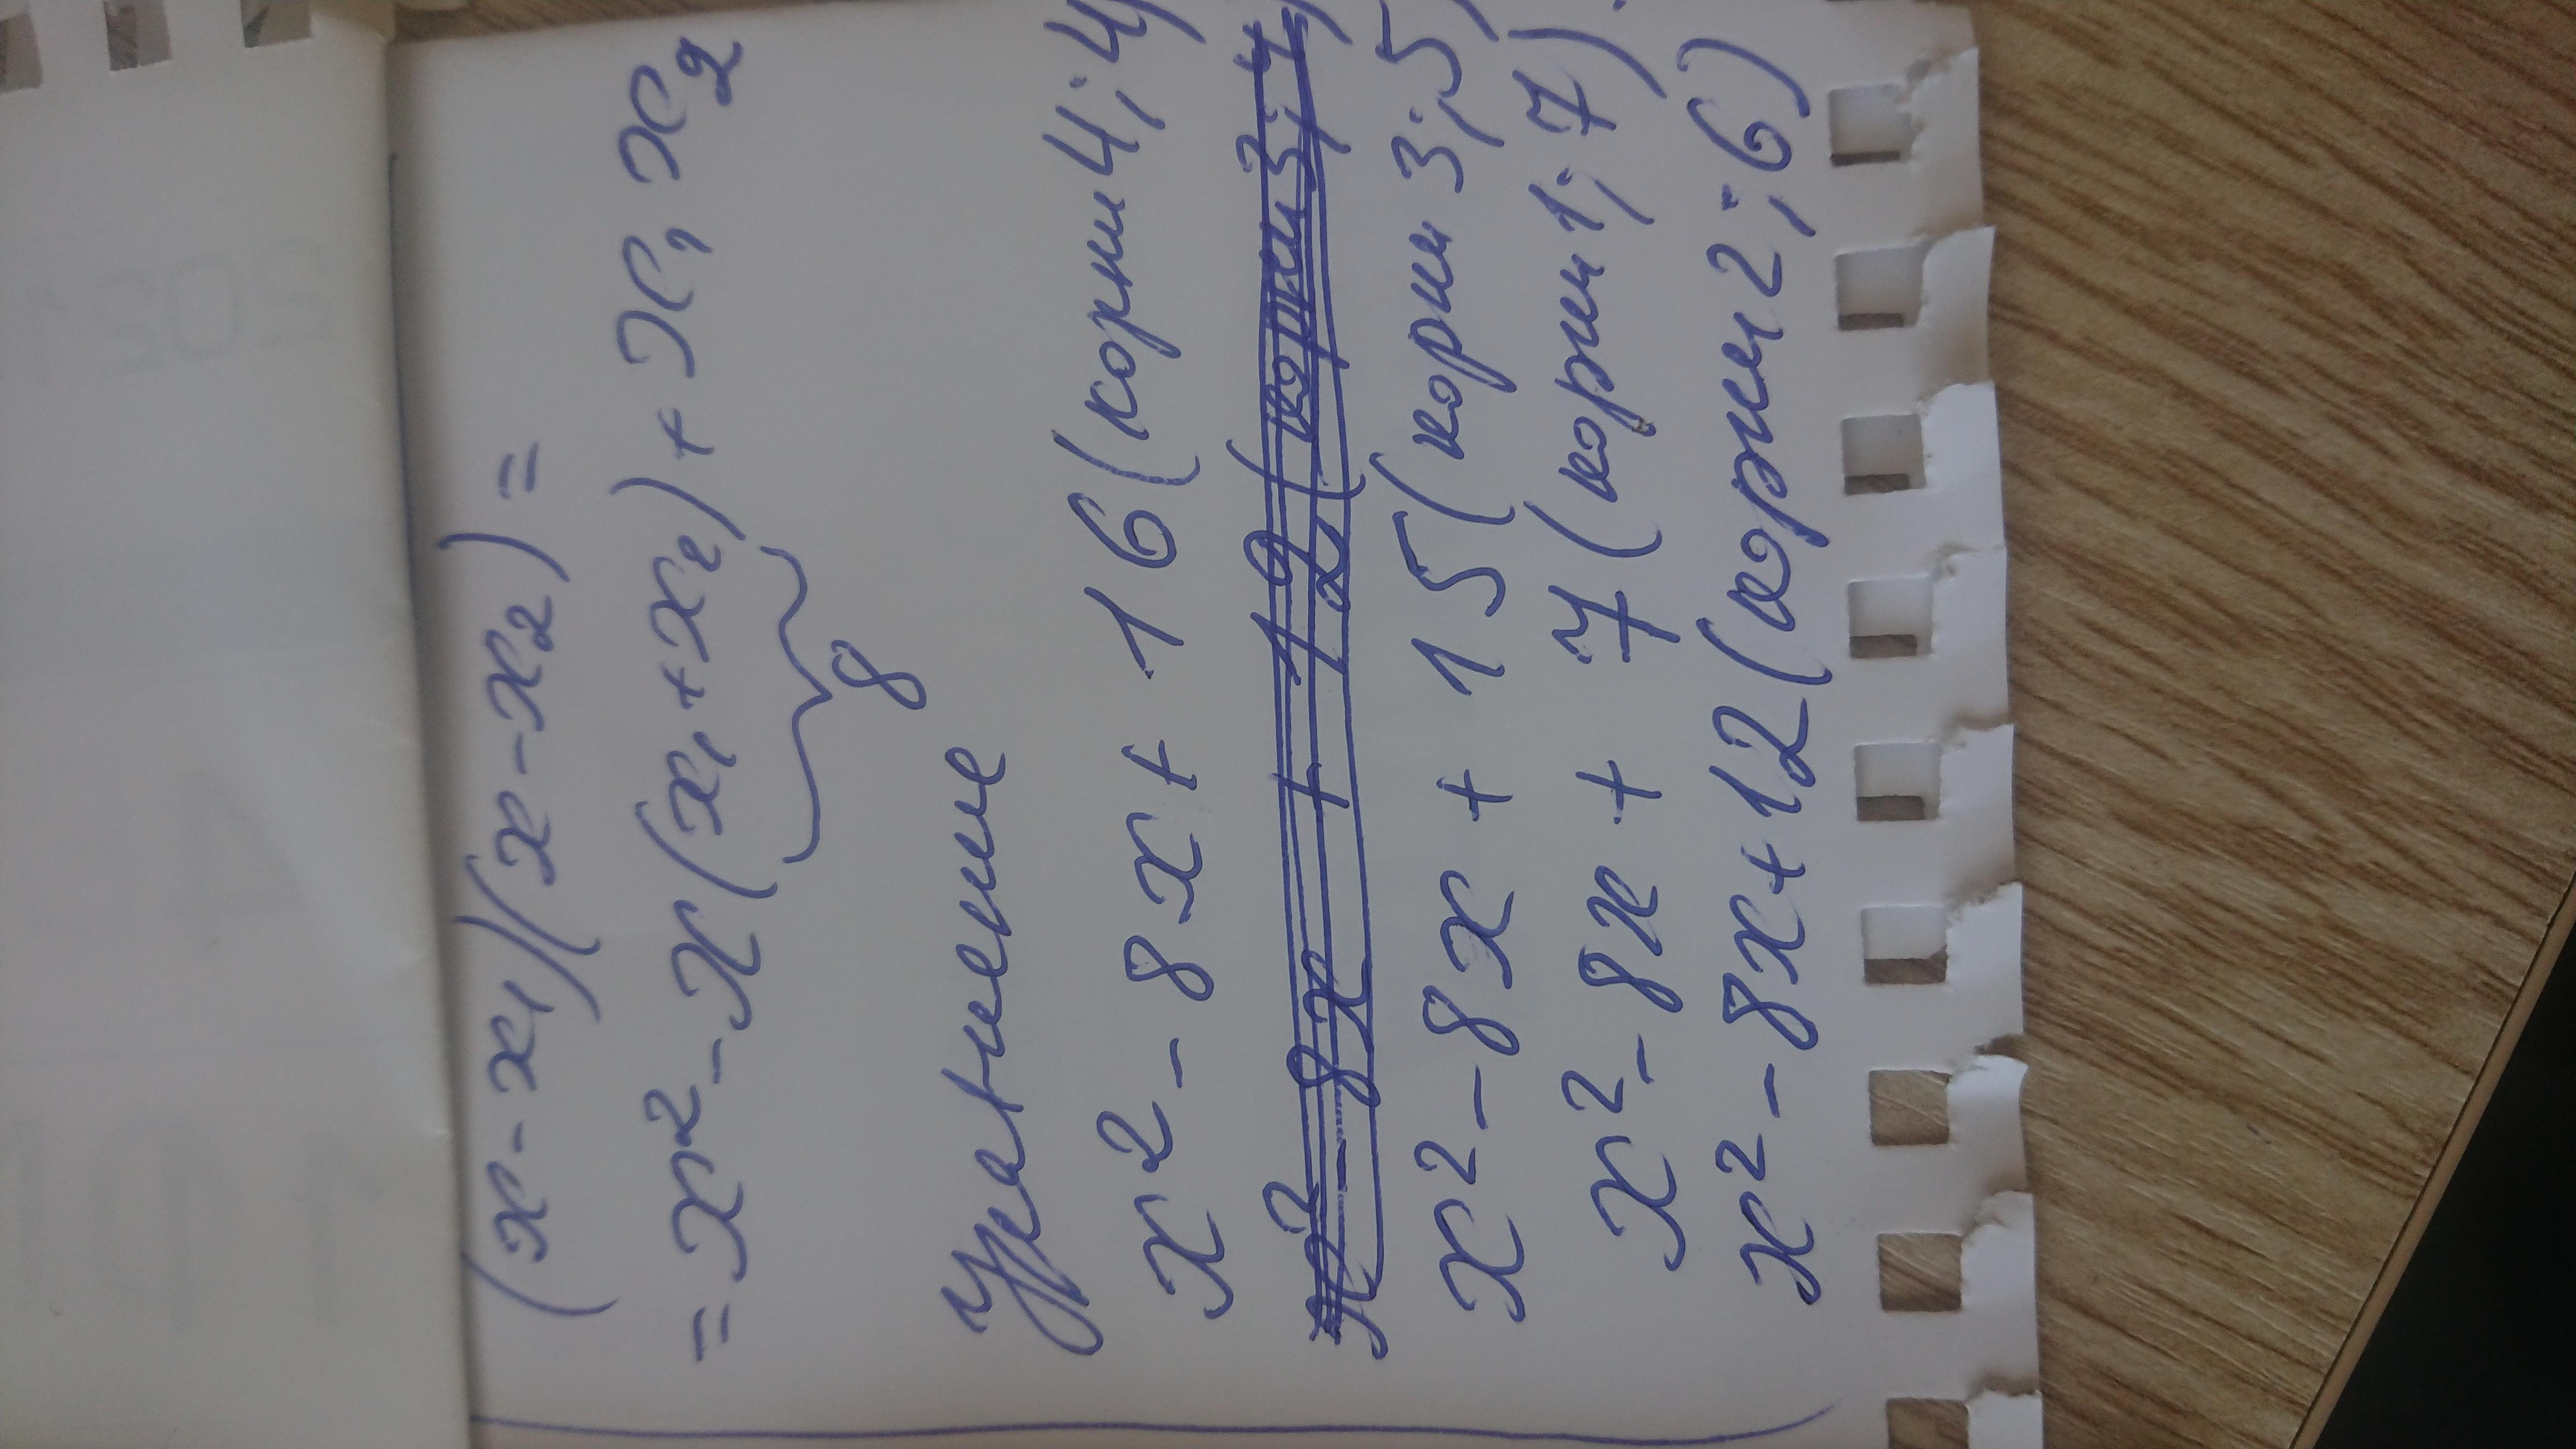 (x - x₁)(x - x₂) =
= x² - x(x₁ + x₂) + x₁ x₂
8
Уравнение
x² - 8x + 16 (корни 4; 4)
x² - 8x + 12 (корни 3; 4)
x² - 8x + 15 (корни 3; 5)
x² - 8x + 7 (корни 1; 7)
x² - 8x + 12 (корни 2; 6)